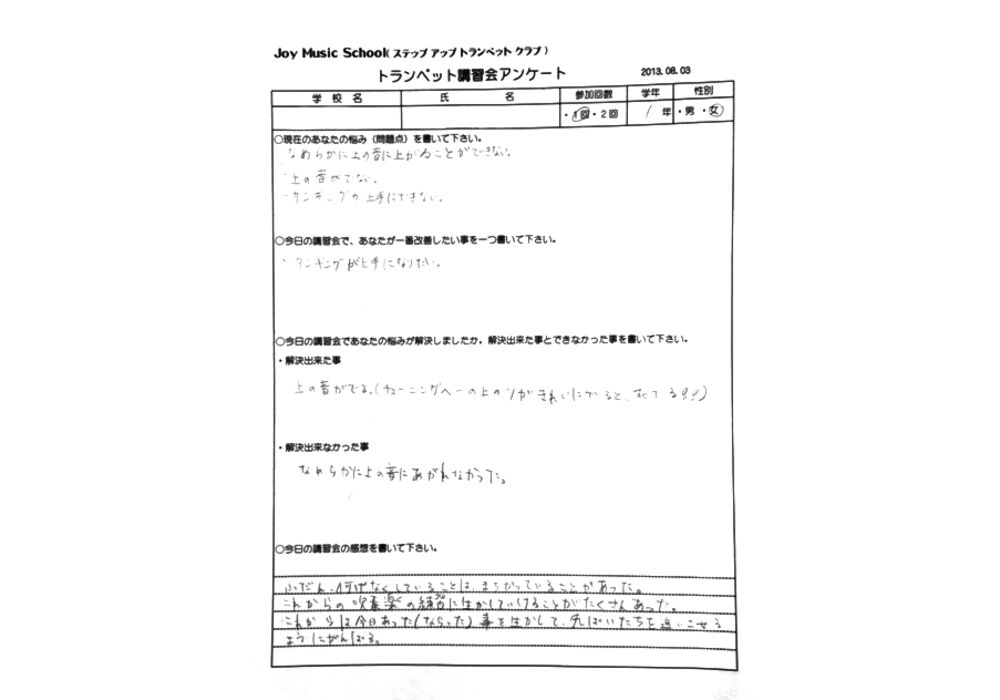 Joy Music School(ステップ アップ トランペット クラブ)
トランペット講習会アンケート 2013.08.03
学校名 氏名 参加回数 学年 性別
・1回・2回 1年 ・男・女
○現在のあなたの悩み(問題点)を書いて下さい。
なめらかに上の音に上がることができない。
・上の音がでない。
・タンギングが上手にできない。
○今日の講習会で、あなたが一番改善したい事を一つ書いて下さい。
・タンギングが上手になりたい。
○今日の講習会であなたの悩みが解決しましたか。解決出来た事とできなかった事を書いて下さい。
・解決出来た事
上の音がでる。(チューニングベーの上のソがきれいにでると、すべてる??)
・解決出来なかった事
なめらかに上の音にあがれなかった。
○今日の講習会の感想を書いて下さい。
ふだん、何げなくしていることは、まちがっていることがあった。
これからの吹奏楽の練習に生かしていけることがたくさんあった。
これからは今日あった(ならった)事を生かして、先ぱいたちを追いこせる
ようにがんばる。